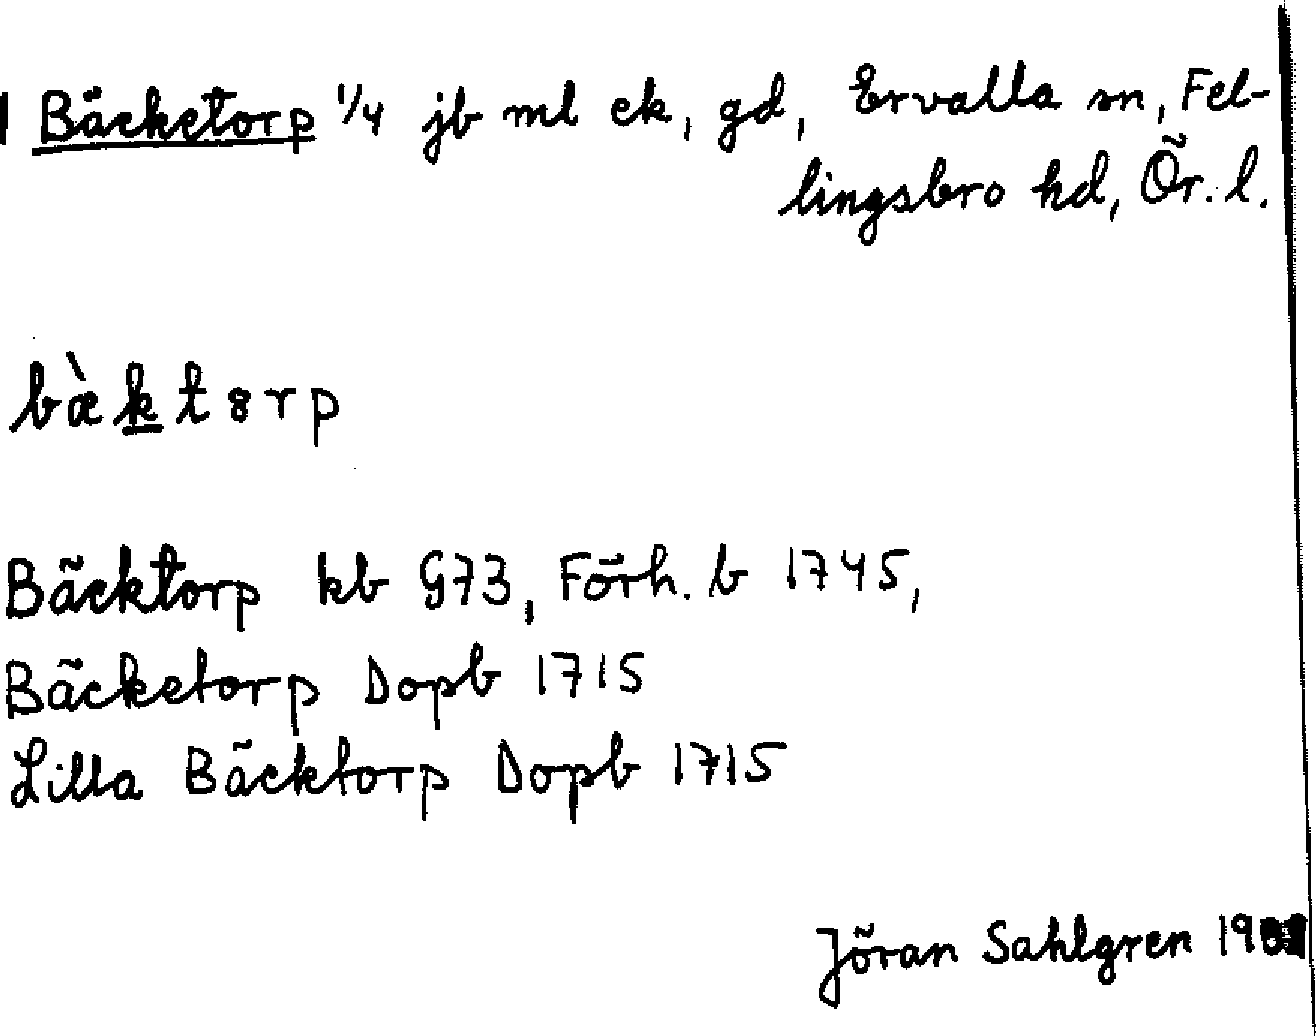 Bäcketorp 1/4 jb ml ek, gd, Ervalla sn, Fel-
lingsbro hd, Ör. l.
bàktȣrp
Bäcktorp kb G73, Förh. b 1745,
Bäcketorp Dopb 1715
Lilla Bäcktorp Dopb 1715
Jöran Sahlgren